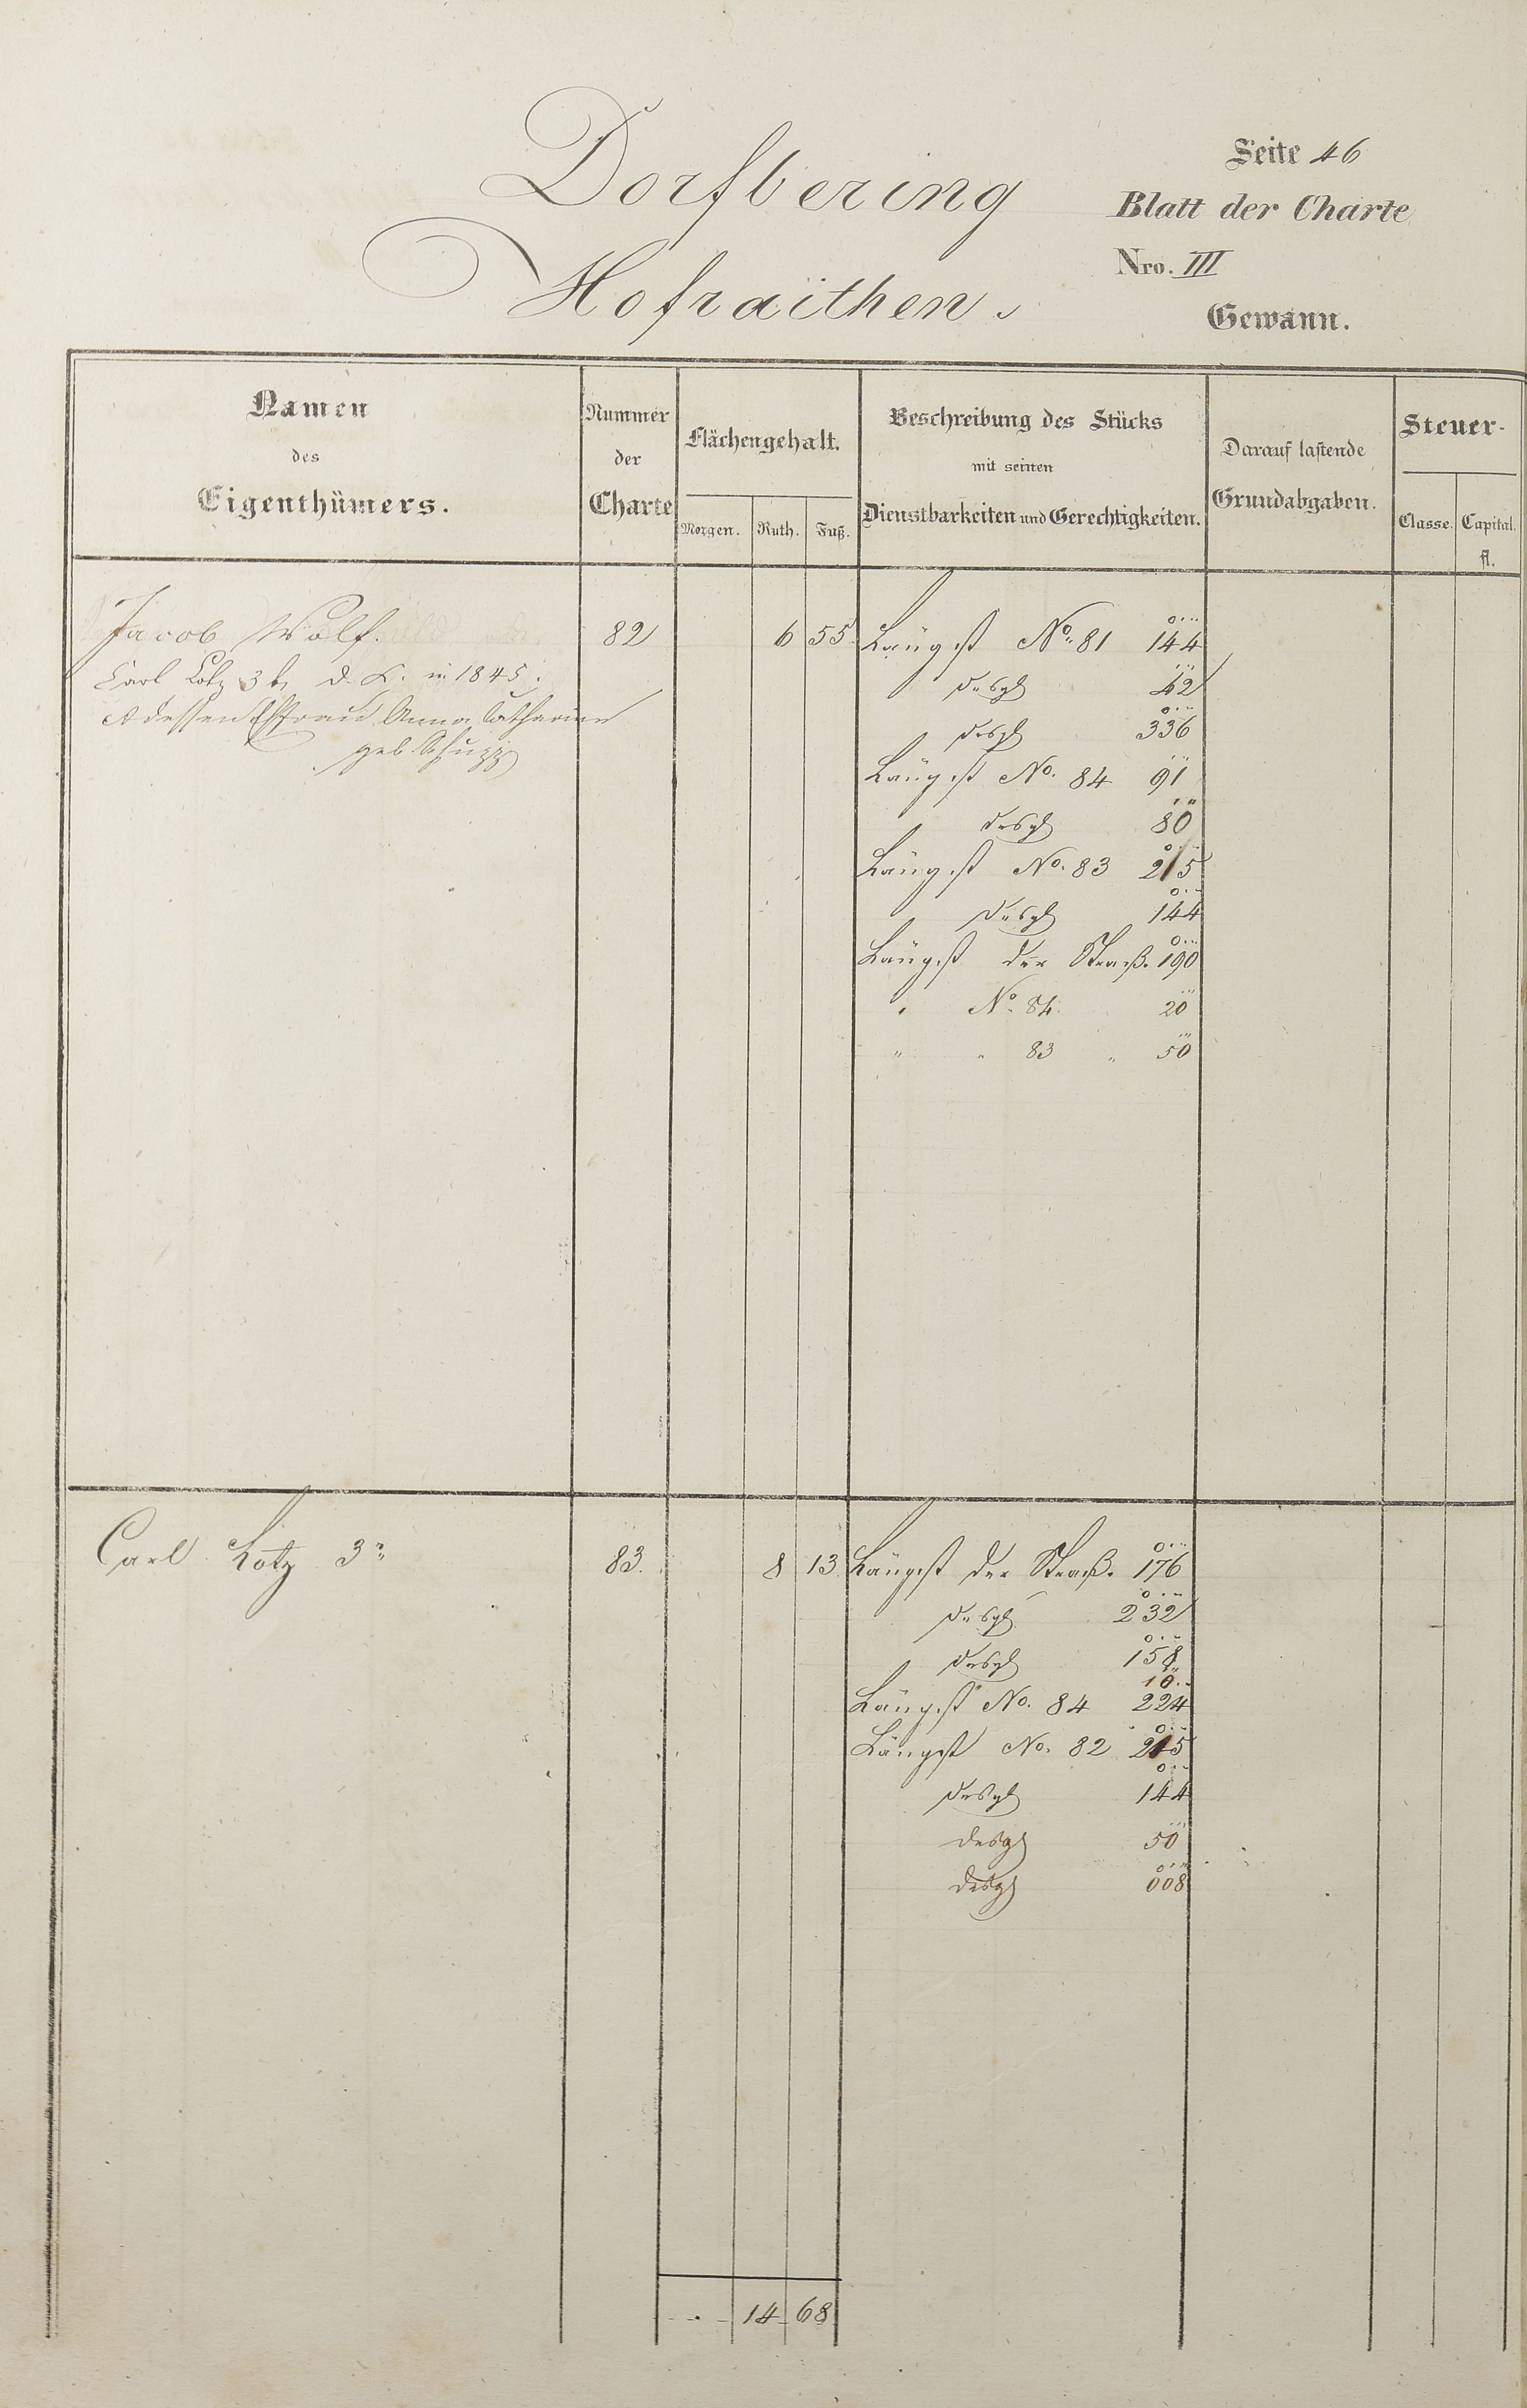 Dorfbering
Hofraithen.
Seite 46
Blatt der Charte
Nro. III
Gewann.
Namen
des
Eigenthümers.
Nummer
der
Charte
Flächengehalt.
Morgen. Ruth. Fuß.
Beschreibung des Stücks
mit seinen
Dienstbarkeiten und Gerechtigkeiten.
Darauf lastende
Grundabgaben.
Steuer-
Classe. Capital.
fl.
Jacob Wolf. 82 6 55 Längst No. 81 144
Carl Lotz 3t d. K. in 1845. desgl 42
dessen Ehfrau Anna Catharine desgl 336
geb. Schupp
Längst No. 84 91
desgl 80
Längst No. 83 215
desgl 144
Längst der Straß. 190
" No. 84. 20
" " 83 " 50
Carl Lotz 3r 83. 8 13 Längst der Straß. 176
desgl 232
desgl 158
Längst No. 84 224
Längst No. 82 215
desgl 144
desgl 50
desgl 008
14 68